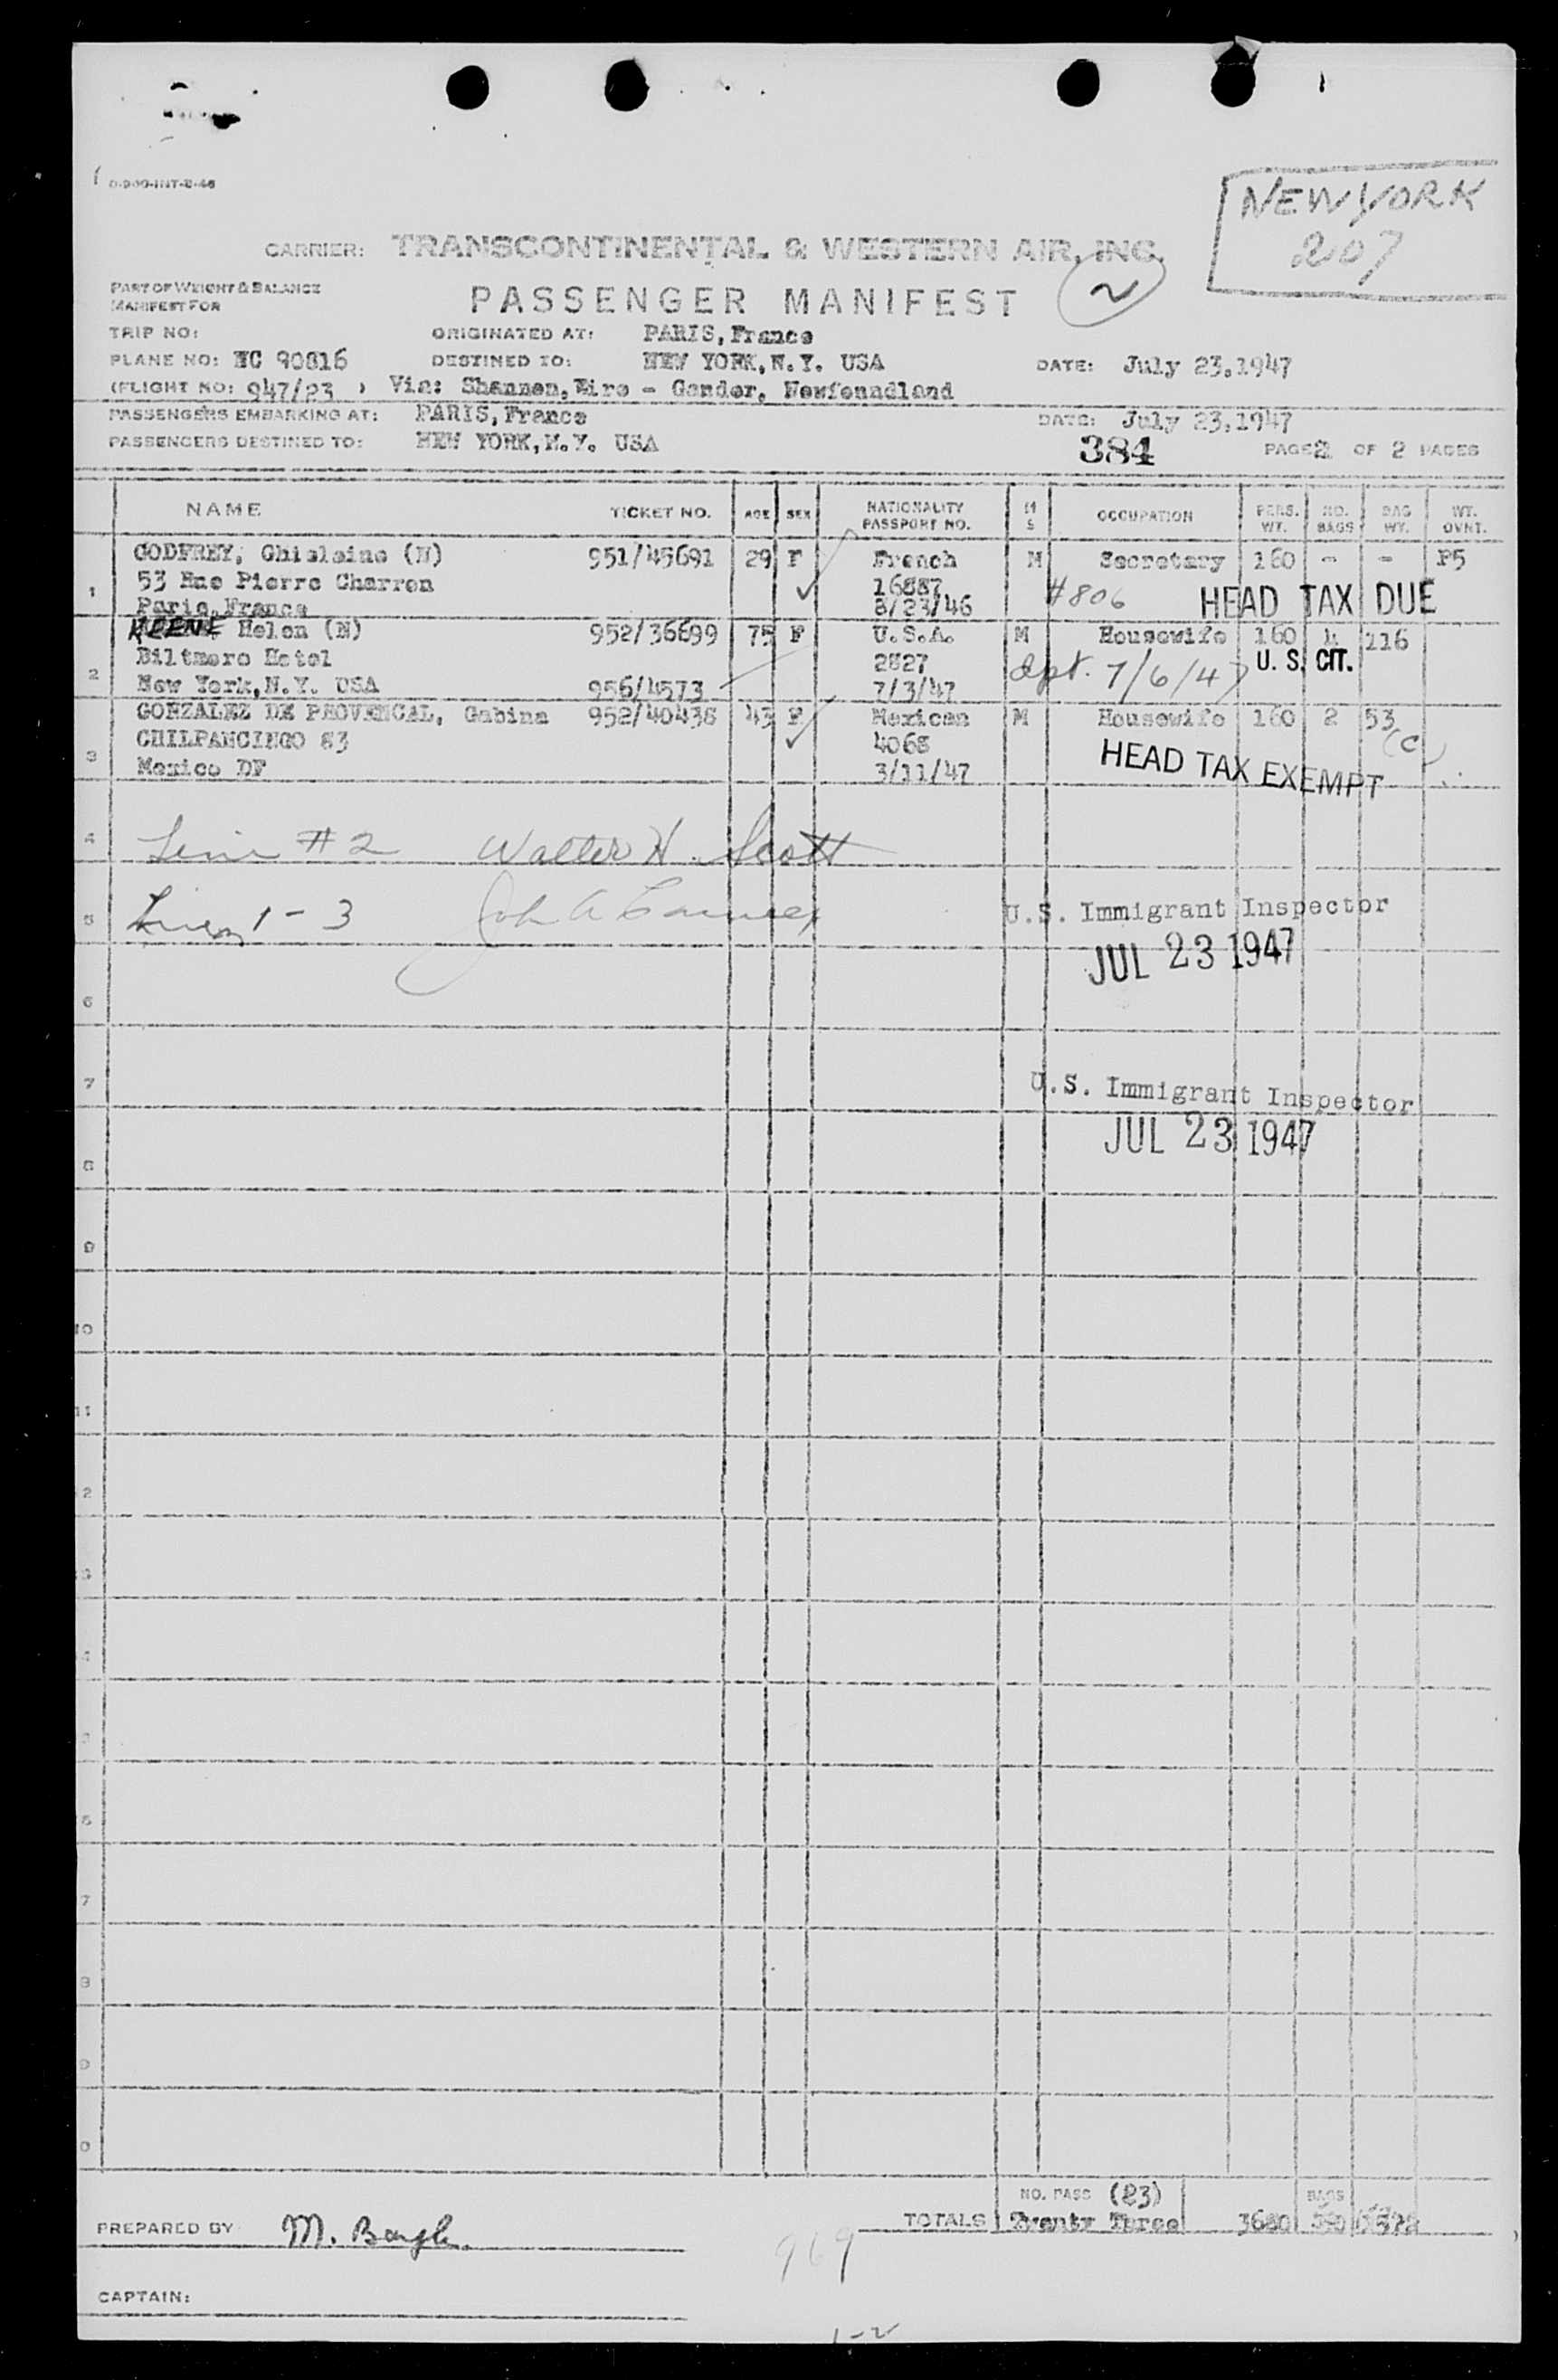 0-900-INT-2-46
NEW YORK
207
CARRIER: TRANSCONTINENTAL & WESTERN AIR, INC.
PART OF WEIGHT & BALANCE
MANIFEST FOR
PASSENGER MANIFEST
2
TRIP NO:
ORIGINATED AT: PARIS, France
PLANE NO: NC 90816
DESTINED TO: NEW YORK, N.Y. USA
DATE: July 23, 1947
(FLIGHT NO: 947/23 ) Via: Shannon, Eire - Gander, Newfoundland
PASSENGERS EMBARKING AT: PARIS, France
DATE: July 23, 1947
PASSENGERS DESTINED TO: NEW YORK, N.Y. USA
384
PAGE 2 OF 2 PAGES
NAME TICKET NO. AGE SEX NATIONALITY PASSPORT NO. M S OCCUPATION PERS. WT. NO. BAGS BAG WT. WT. OVNT.
1 GODFREY, Ghislaine (N) 951/45691 29 F French M Secretary 160 - - P5
53 Rue Pierre Charron 16887 #806 HEAD TAX DUE
Paris, France 8/23/46
2 KEENE Helen (N) 952/36699 75 F U.S.A. M Housewife 160 4 116
Biltmore Hotel 2827 dpt. 7/6/47 U. S. CIT.
New York, N.Y. USA 956/4573 7/3/47
3 GONZALEZ DE PROVENCAL, Gabina 952/40438 43 F Mexican M Housewife 160 2 53
CHILPANCINGO 83 4068 (C)
Mexico DF 3/11/47 HEAD TAX EXEMPT
4 Line #2 Walter H. Scott
5 Lines 1-3 John A
U.S. Immigrant Inspector
JUL 23 1947
6
7
U.S. Immigrant Inspector
JUL 23 1947
8
9
10
11
2
3
4
5
6
7
8
9
0
NO. PASS (23) BAGS
TOTALS Twenty Three 3680
PREPARED BY M.
969
CAPTAIN:
1-2